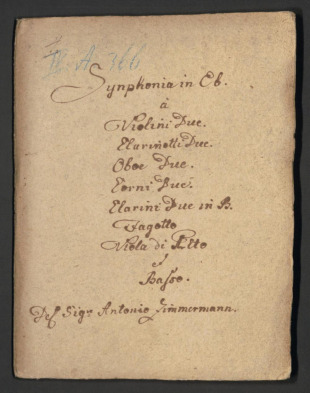 IV A 366
Synphonia in Eb.
à
Violini Due.
Clarinetti Due.
Oboe Due.
Corni Due.
Clarini Due in B.
Fagotto
Viola di Alto
è
Basso.
Del Sigre Antonio Zimmermann.